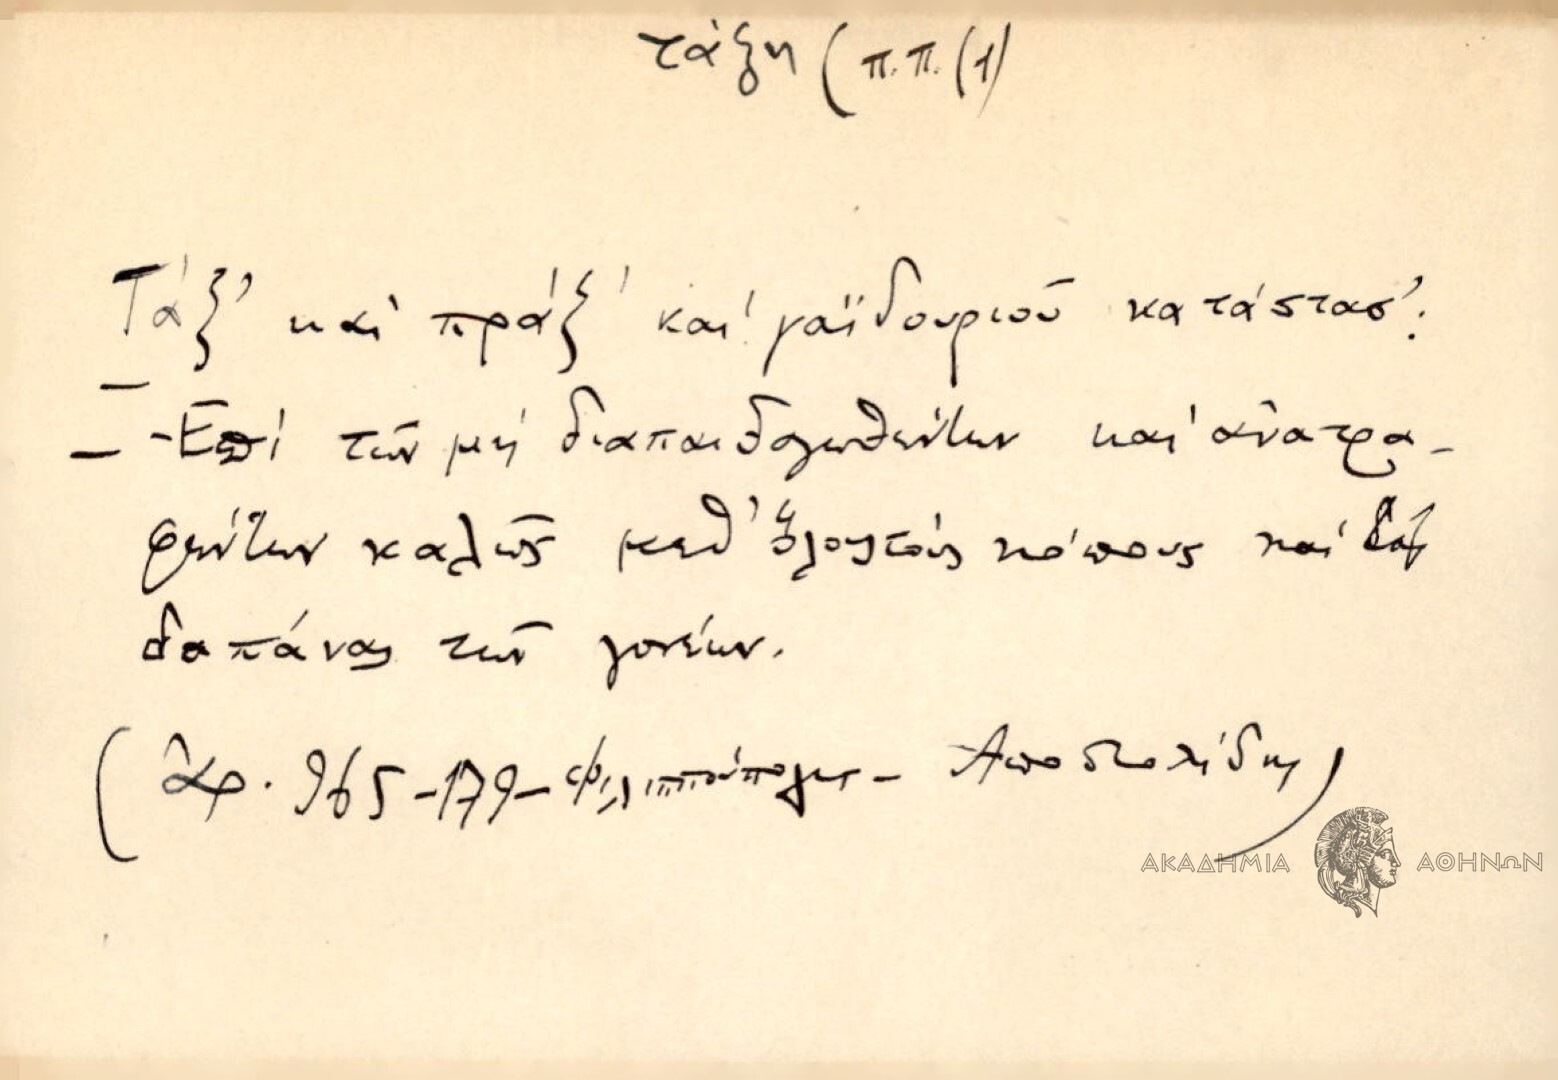 τάξη (π.π. (1)
Τάξ' καὶ πράξ' καὶ γαϊδουριοῦ κατάστασ'.
-Ἐπὶ τῶν μὴ διαπαιδαγωγηθέντων καὶ ἀνατρα-
φέντων καλῶς μεθ' ὅλους τοὺς κόπους καὶ τὰς
δαπάνας τῶν γονέων.
(ἀρ. 965-179- Φιλιππούπολις - Ἀποστολίδης)
ΑΚΑΔΗΜΙΑ ΑΘΗΝΩΝ